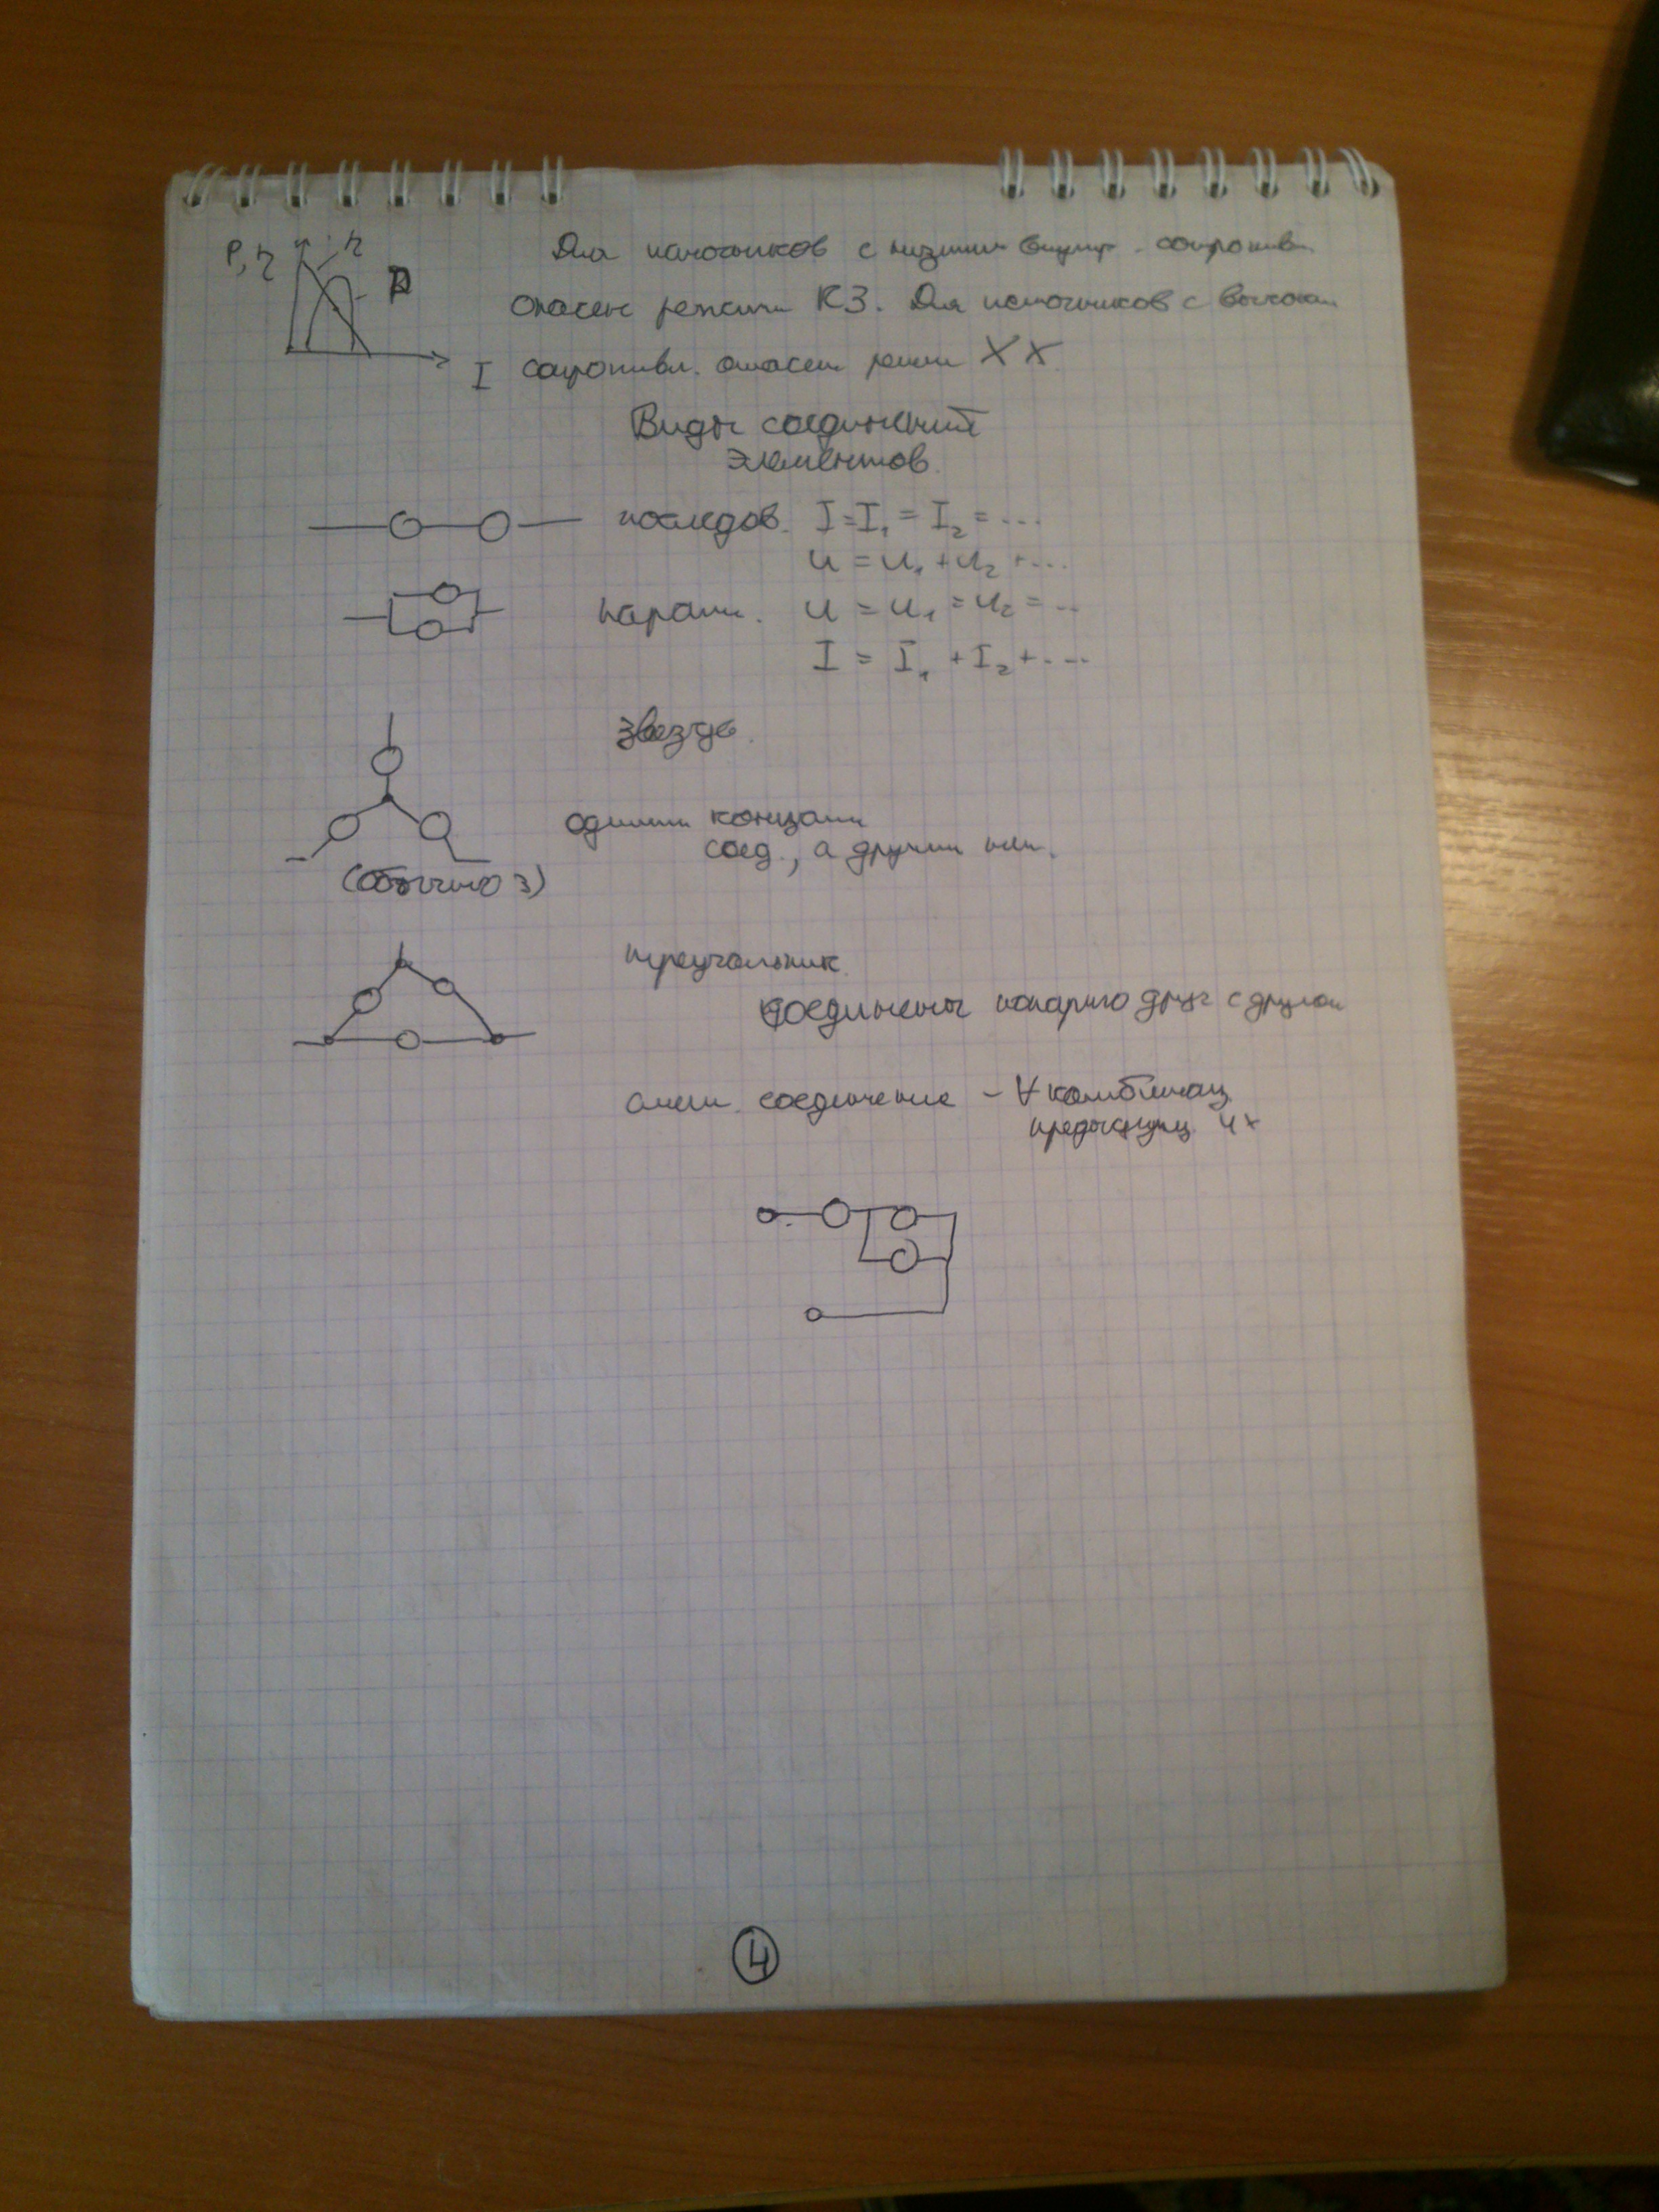 P, η
η
P
I
Для источников с низким внутр. сопротивл.
опасен режим КЗ. Для источников с высоким
сопротивл. опасен режим ХХ
Виды соединений
элементов.
последов. I = I₁ = I₂ = ...
u = u₁ + u₂ + ...
парал. u = u₁ = u₂ = ..
I = I₁ + I₂ + ....
звезда.
одними концами
соед., а другими нет.
(обычно 3)
треугольник.
соединены попарно друг с другом
смеш. соединение – ∀ комбинац.
предыдущ. 4х
4